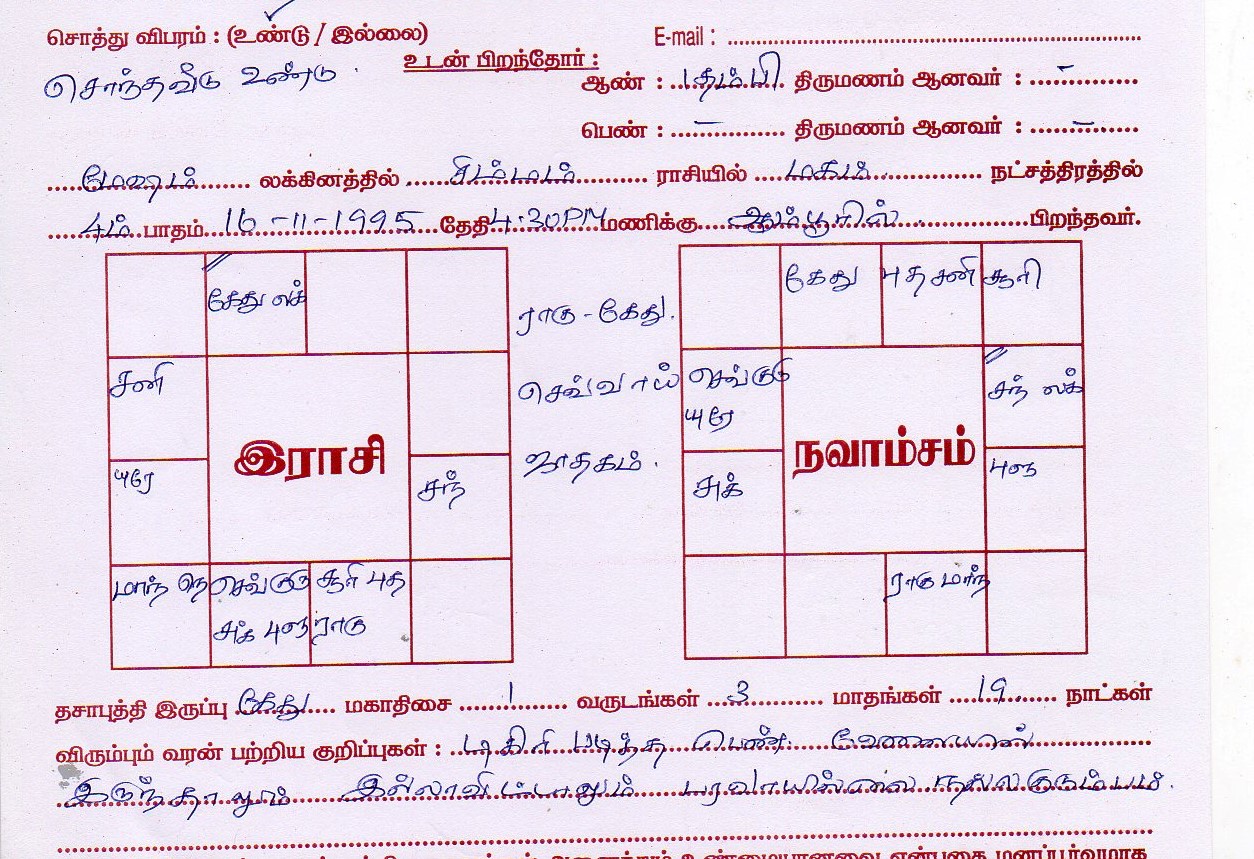 சொத்து விபரம் : (உண்டு / இல்லை) E-mail :
சொந்தவீடு உண்டு. உடன் பிறந்தோர் :
ஆண் : 1 தம்பி திருமணம் ஆனவர் : -
பெண் : - திருமணம் ஆனவர் : -
மேஷம் லக்கினத்தில் சிம்மம் ராசியில் மகம் நட்சத்திரத்தில்
4ம் பாதம் 16-11-1995 தேதி 4:30PM மணிக்கு ஆம்பூரில் பிறந்தவர்.
கேது லக்
சனி
சந்
மாந்
செவ் குரு சூரி புத
சுக் ராகு
இராசி
ராகு - கேது.
செவ்வாய்
ஜாதகம்.
கேது புத சனி சூரி
செவ் குரு
சந் லக்
சுக்
ராகு மாந்
நவாம்சம்
தசாபுத்தி இருப்பு கேது மகாதிசை 1 வருடங்கள் 3 மாதங்கள் 19 நாட்கள்
விரும்பும் வரன் பற்றிய குறிப்புகள் : டிகிரி படித்த பெண். வேலையில்
இருந்தாலும் இல்லாவிட்டாலும் பரவாயில்லை நல்ல குடும்பம்.